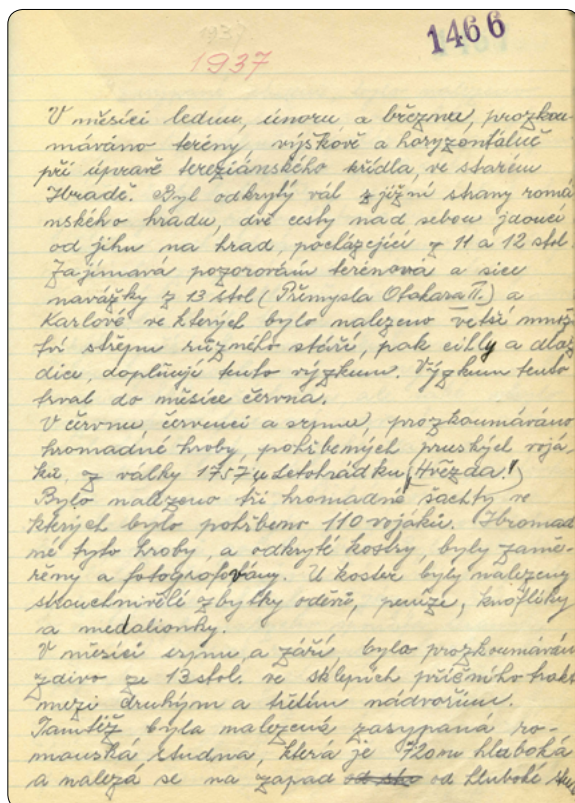 1466
1937
V měsíci lednu, únoru a březnu, prozkou-
máváno terény, výškově a horyzontálně
při úpravě tereziánského křídla, ve starém
Hradě. Byl odkrytý vál z jižní strany romá
nského hradu, dvě cesty nad sebou jdoucí
od jihu na hrad, pocházející z 11 a 12 stol.
Zajímavá pozorování terénová a sice
navážky z 13 stol (Přemysla Otakara II.) a
Karlové ve kterých bylo nalezeno větší množ
ství střepu různého stáří, pak cihly a dlaž
dice, doplňují tento výzkum. Výzkum tento
trval do měsíce června.
V červnu, červenci a srpnu, prozkoumáváno
hromadné hroby, pohřbených pruských vojá-
ků, z války 1757 u Letohrádku (Hvězda!)
Bylo nalezeno tři hromadné šachty ve
kterých bylo pohřbeno 110 vojáků. Hromad
né tyto hroby, a odkryté kostry, byly zamě-
řeny a fotografovány. U koster byly nalezeny
ztrouchnivělé zbytky oděvě, peníze, knoflíky
a medalionky.
V měsíci srpnu a září, bylo prozkoumáván
zdivo ze 13 stol. ve sklepích příčního trakt
mezi druhým a třetím nádvořím.
Tamtéž byla nalezená zasypaná ro-
mánská studna, která je 42om hluboká
a nalezá se na západ od hluboké